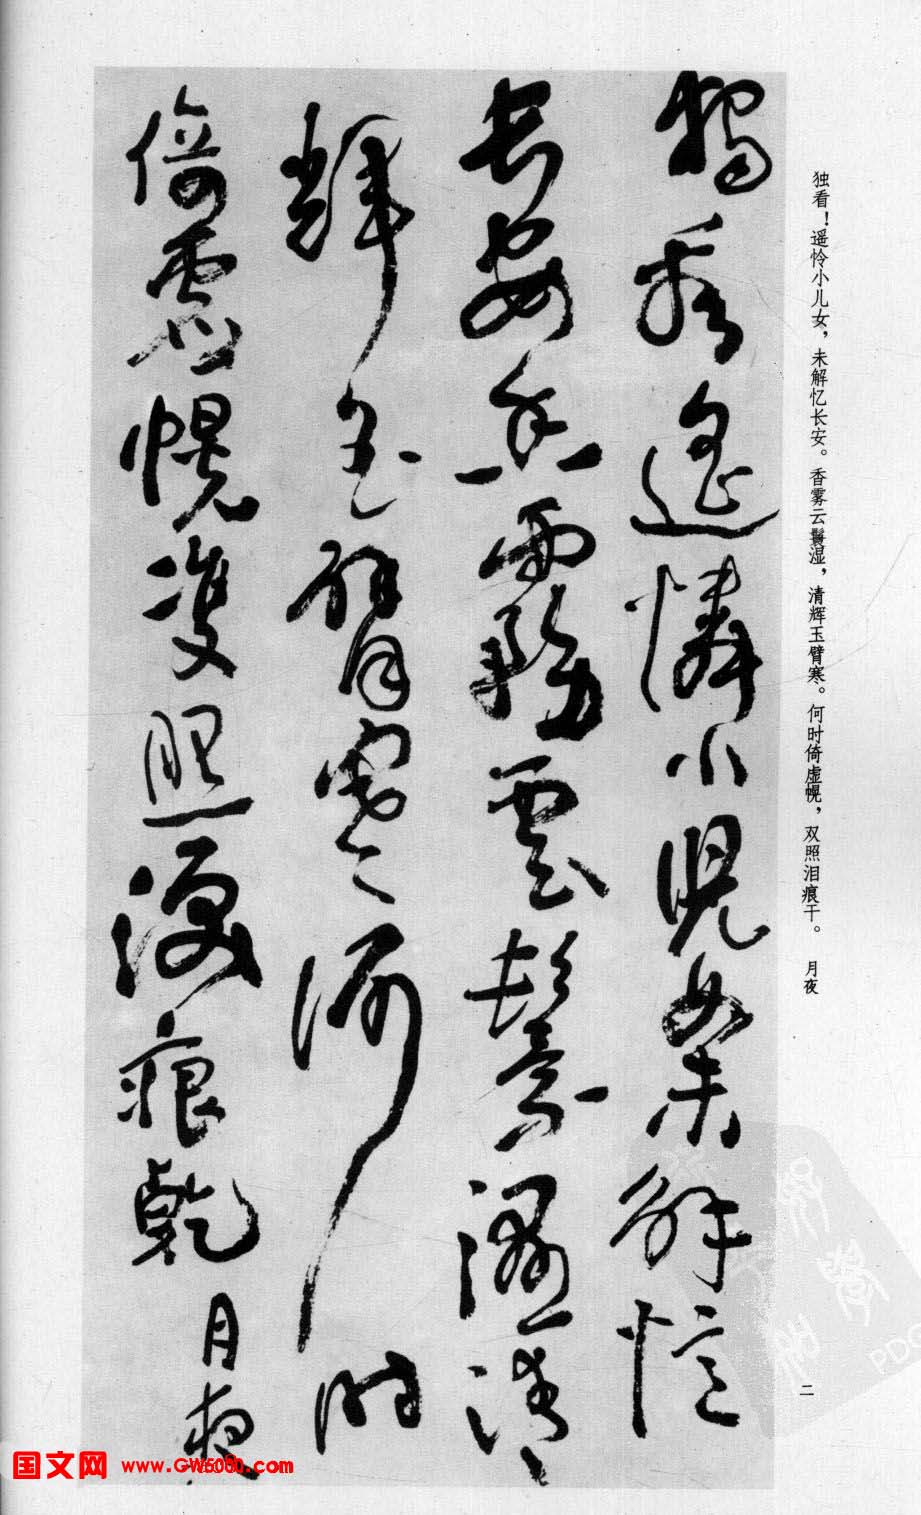 獨看遙憐小兒女未解憶
長安香霧雲鬟濕清
輝玉臂寒何時
倚虛幌雙照淚痕乾 月夜
独看！遥怜小儿女，未解忆长安。香雾云鬟湿，清辉玉臂寒。何时倚虚幌，双照泪痕干。 月夜
二
国文网 www.GW5080.com